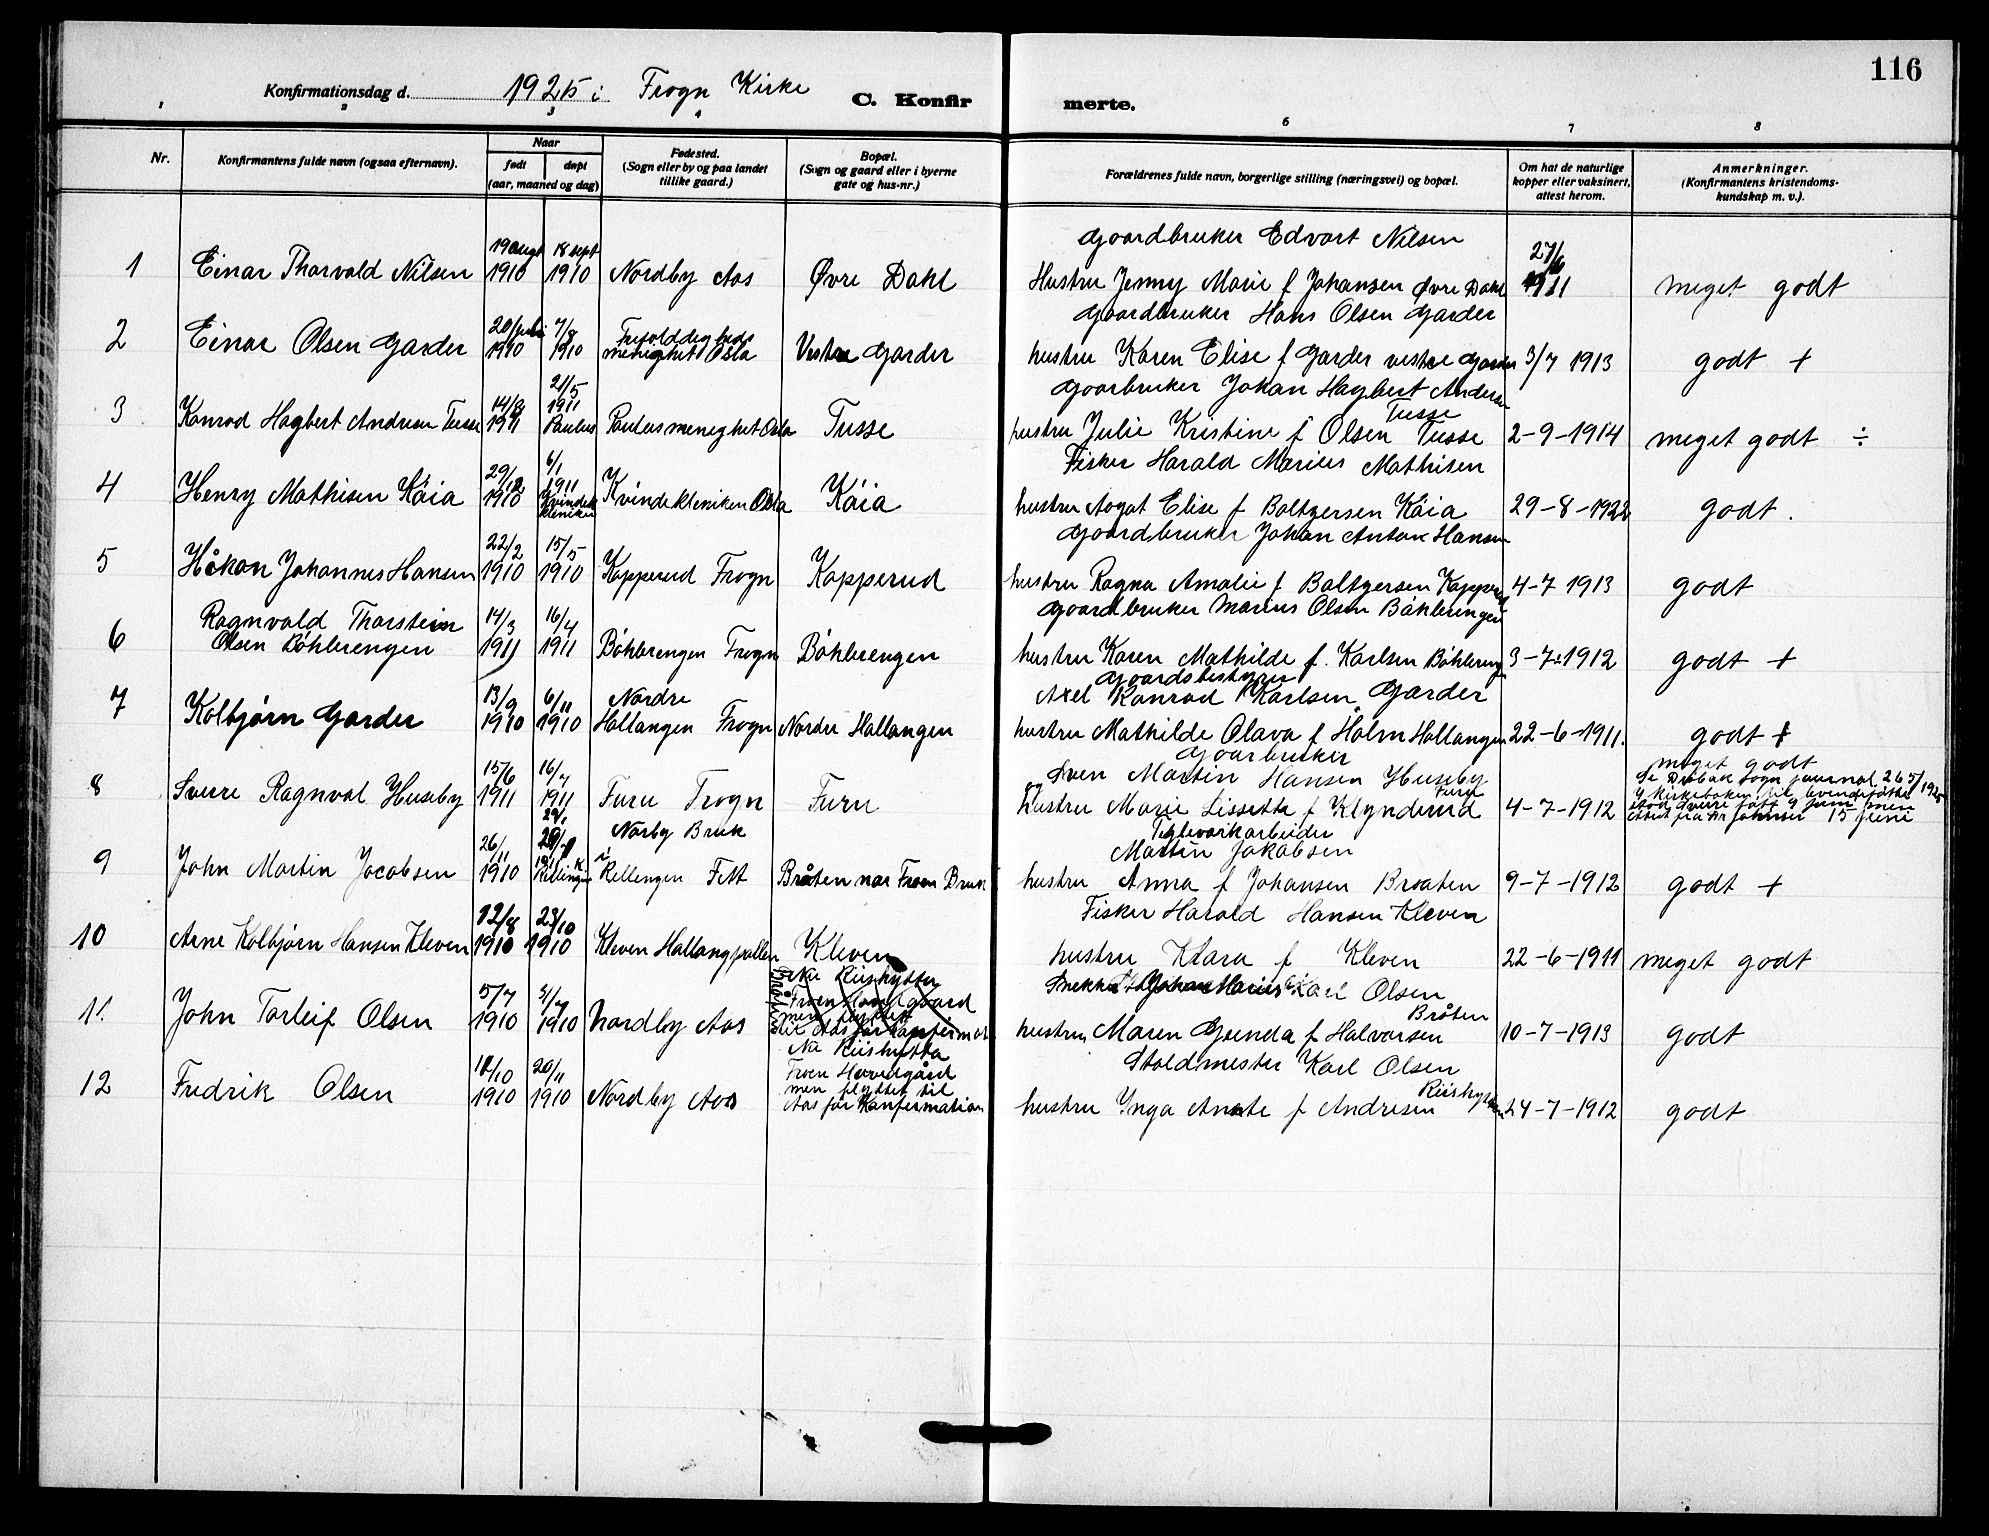 116
Konfirmationsdag d. 1925 i Frogn Kirke C. Konfir merte.
1 2 3 4 6 7 8
Nr.
Konfirmantens fulde navn (ogsaa efternavn).
Naar
født døpt
(aar, maaned og dag)
Fødested.
(Sogn eller by og paa landet
tillike gaard.)
Bopæl.
(Sogn og gaard eller i byerne
gate og hus-nr.)
Forældrenes fulde navn, borgerlige stilling (næringsvei) og bopæl.
Om hat de naturlige
kopper eller vaksinert,
attest herom.
Anmerkninger.
(Konfirmantens kristendoms-
kundskap m. v.).
gaardbruker Edvart Nilsen
19 augt 18 sept 27/6
1 Einar Thorvald Nilsen 1910 1910 Nordby Aas Øvre Dahl Hustru Jenny Marie f Johansen Øvre Dahl 1911 meget godt
gaardbruker Hans Olsen Garder
2 Einar Olsen Garder 20/juli 1910 7/8 1910 menighet Oslo Vestre Garder hustru Karen Elise f Garder vestre Garder 3/7 1913 godt +
gaarbruker Johan Hagbert Andersen
Tusse
3 Konrad Hagbert Andresen Tusse 14/3 1911 21/5 1911 Paulus Paulus menighet Oslo Tusse hustru Julie Kristine f Olsen Tusse 2-9-1914 meget godt ÷
Fisker Harald Marius Mathisen
4 Henry Mathisen Kåia 29/12 1910 6/1 1911 Kvindeklinikken Kvindekleniken Oslo Kåia hustru Aagot Elise f Baltzersen Kåia 29-8-1922 godt.
gaardbruker Johan Anton Hansen
5 Håkon Johannes Hansen 22/2 1910 15/5 1910 Kopperud Frogn Kopperud hustru Ragna Amalie f Baltzersen Kopperud 4-7 1913 godt
gaardbruker Marius Olsen Bøhlerengen
6 Ragnvald Thorstein
Olsen Bøhlerengen 14/3 1911 16/4 1911 Bøhlerengen Frogn Bøhlerengen hustru Karen Mathilde f. Karlsen Bøhlereng 3-7-1912 godt +
gaardsbestyrer
Axel Konrad Karlsen Garder
7 Kolbjørn Garder 13/9 1910 6/11 1910 Nordre
Hallangen Frogn Nordre Hallangen hustru Mathilde Olava f Holm Hallangen 22-6-1911. godt +
gaarbruker
Sven Martin Hansen Huseby
Furu
8 Sverre Ragnval Huseby 15/6 1911 16/7 1911 Furu Frogn Furu hustru Marie Lissette f Klynderud 4-7-1912 meget godt
Se Drøbak sogn journal 265/1925
Teglverkarbeider
Martin Jakobsen
9 John Martin Jacobsen 26/11 1910 Norby Bruk
i Rellengen Fett Bråten nær Froen Bruk hustru Anna f Johansen Braaten 9-7-1912 godt +
Fisker Harald Hansen Kleven
10 Arne Kolbjørn Hansen Kleven 12/8 1910 23/10 1910 Kleven Hallangspollen Kleven hustru Klara f Kleven 22-6-1911 meget godt
Karl Olsen
Bråten
11. John Torleif Olsen 5/7 1910 31/7 1910 Nordby Aas hustru Maren Gunda f Halvorsen 10-7-1913 godt
Staldmester Karl Olsen
Riishytten
12 Fredrik Olsen 11/10 1910 20/11 1910 Nordby Aas Riishytta
Froen Hovedgård
men flyttet til
Aas før Konfirmation hustru Inga Anette f Andresen 24-7-1912 godt